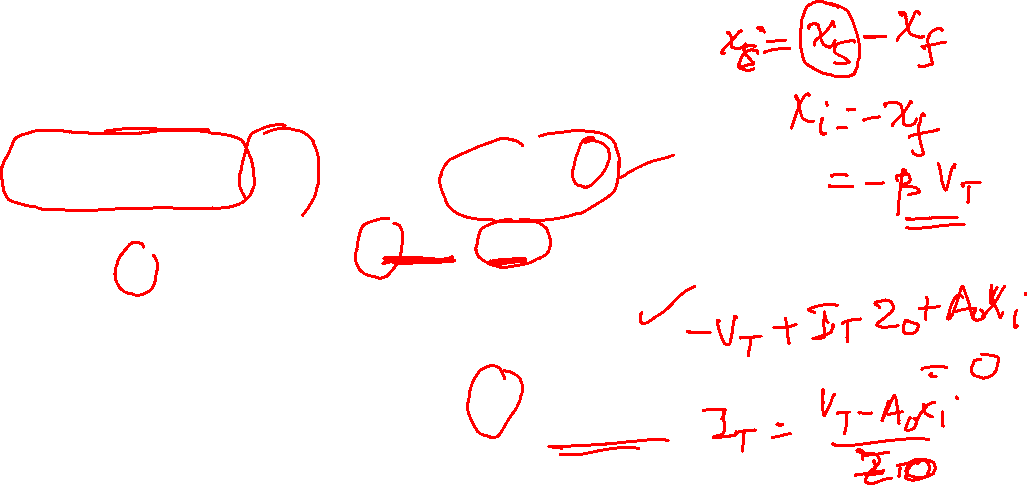 x_i = x_s - x_f
x_i = -x_f
= -β V_T
-V_T + I_T Z_0 + A_0 x_i
= 0
I_T = (V_T - A_0 x_i) / Z_0